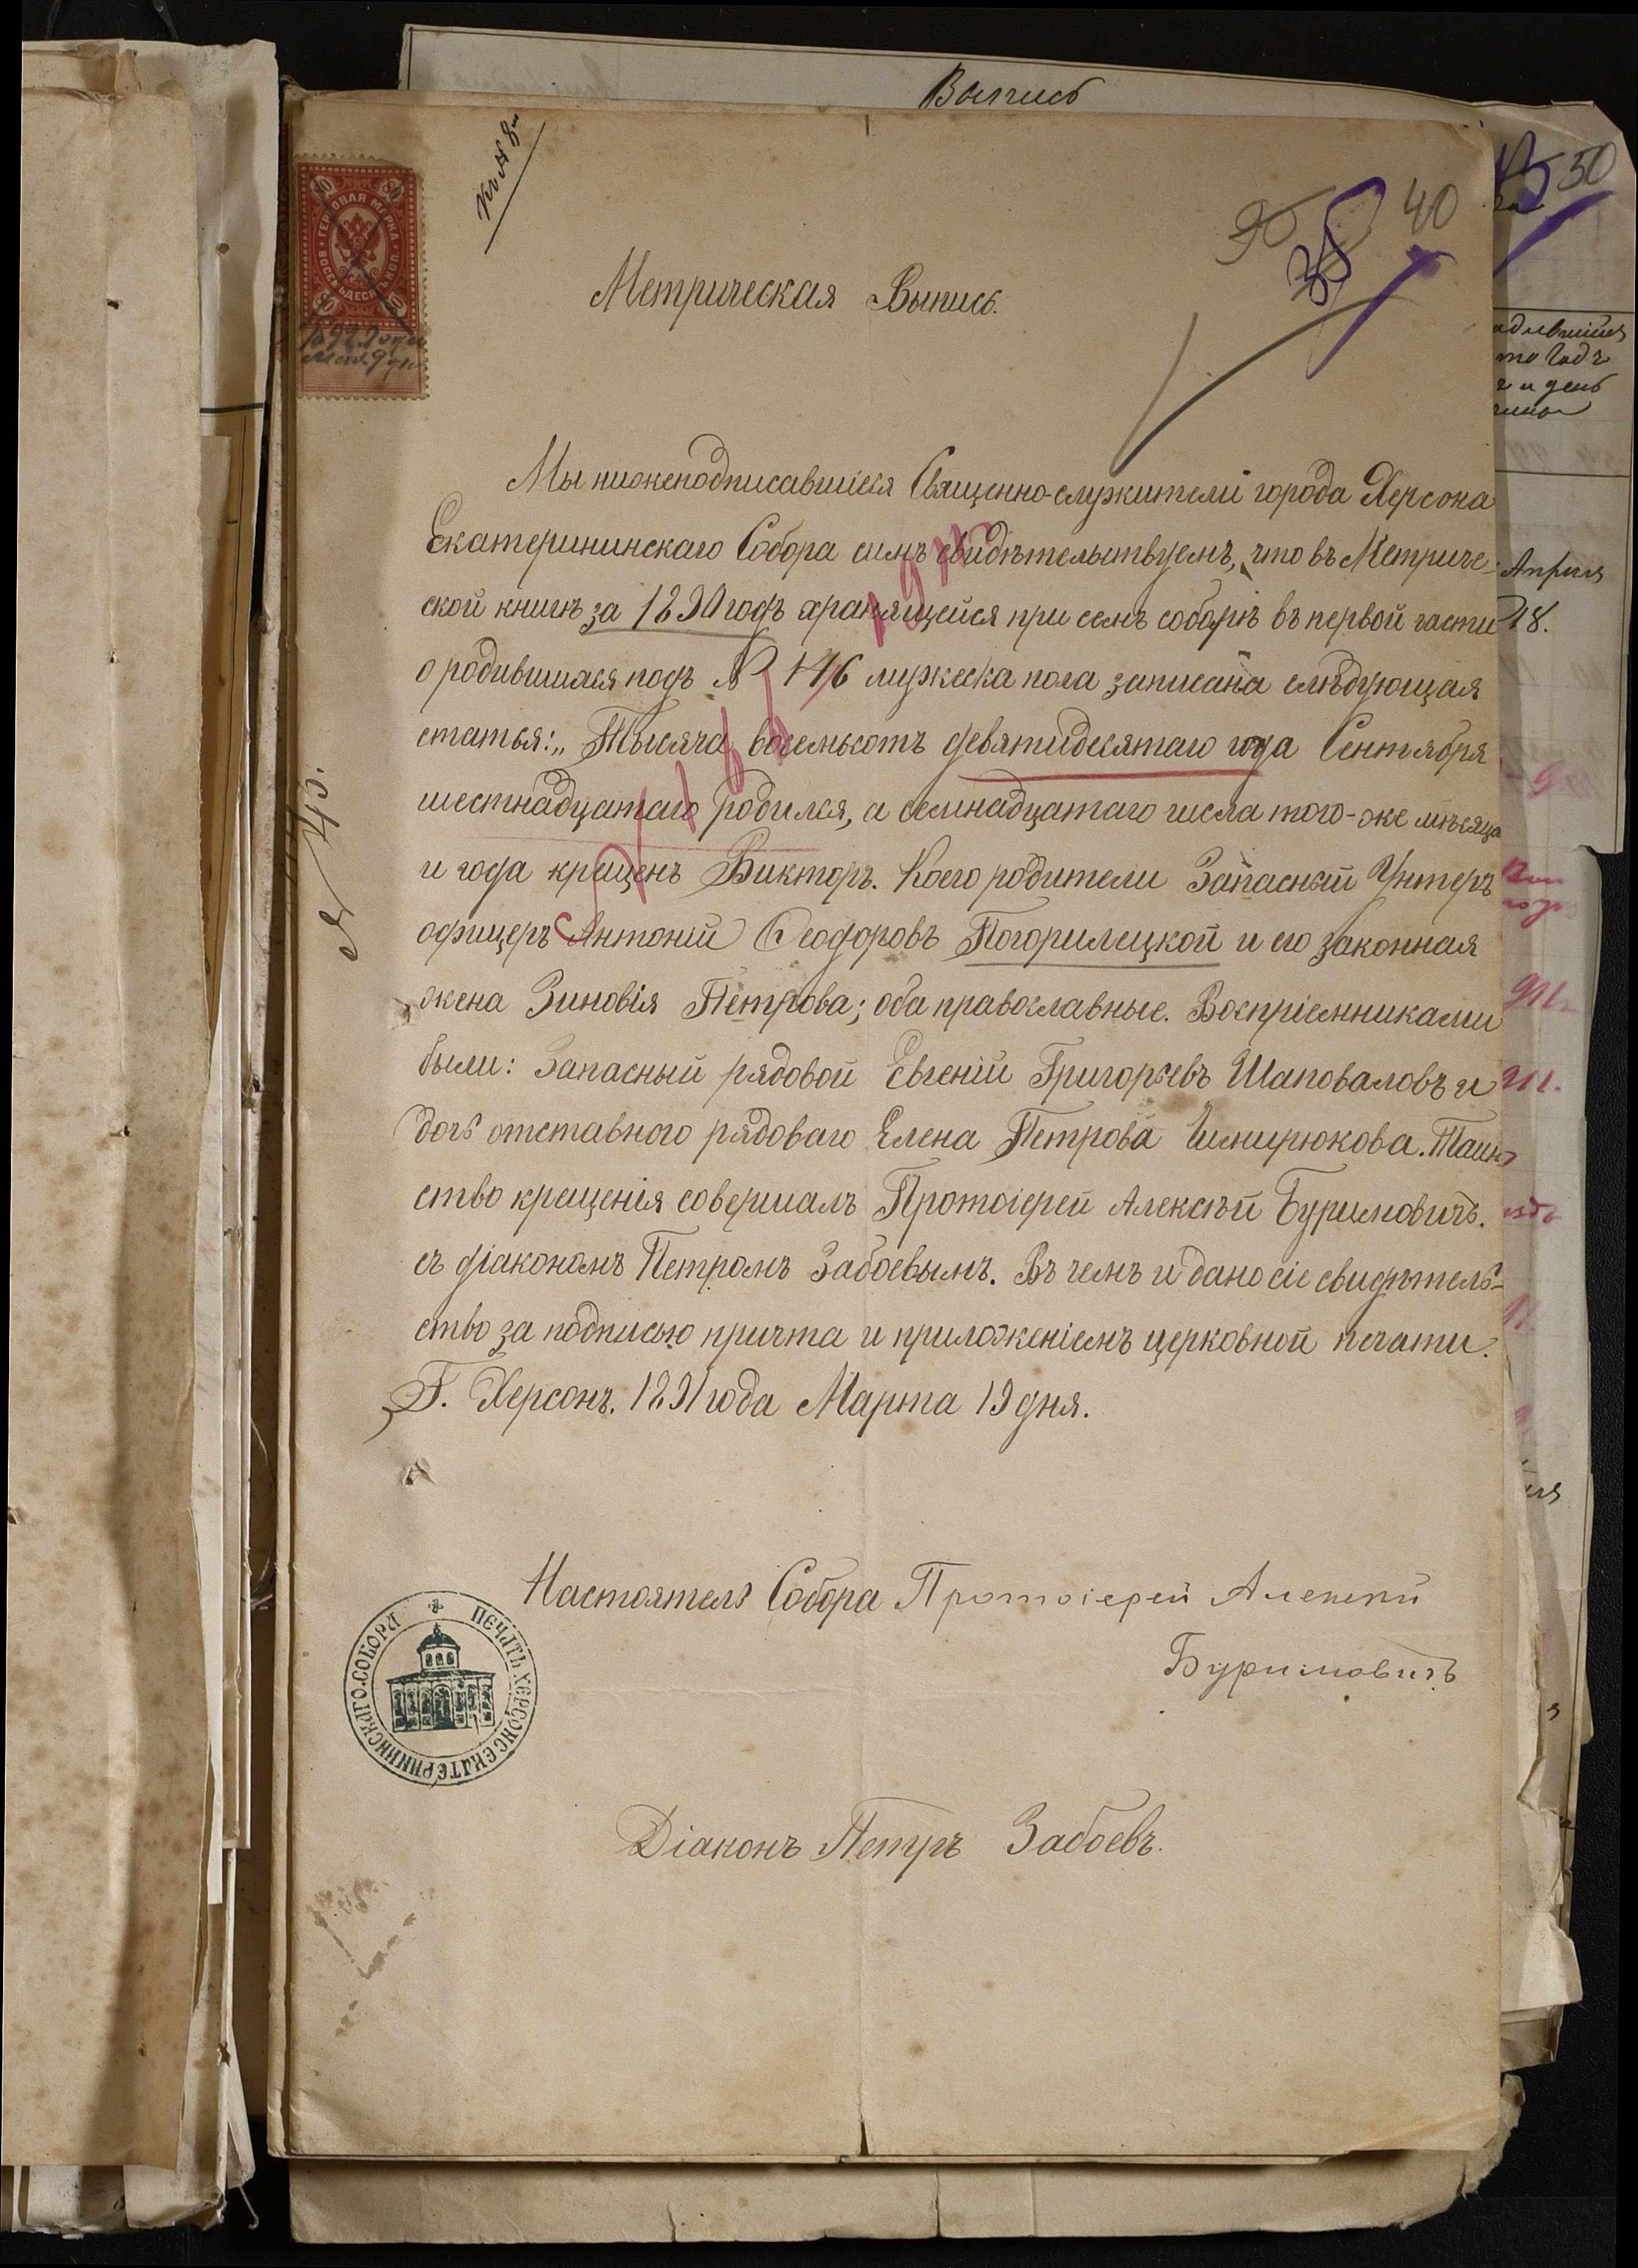 Выпись
50
90
38
40
ГЕРБОВАЯ МАРКА
ВОСЕМЬДЕСЯТ КОП.
80 80
1892 года
Мая 9 дня
Метрическая Выпись.
Мы нижеподписавшіеся Священно-служители города Херсона
Екатерининскаго Собора симъ свидѣтельствуемъ, что въ Метриче-
ской книгѣ за 1890 годъ хранящейся при семъ соборѣ въ первой части
о родившихся подъ № 146 мужеска пола записана слѣдующая
статья: „Тысяча восемьсотъ девятидесятаго года Сентября
шестнадцатаго родился, а семнадцатаго числа того-же мѣсяца
и года крещенъ Викторъ. Коего родители Запасный Унтеръ
офицеръ Антоній Ѳеодоровъ Погорилецкой и его законная
жена Зиновія Петрова; оба православные. Воспріемниками
были: Запасный рядовой Евгеній Григорьевъ Шаповаловъ и
дочь отставного рядоваго Елена Петрова Таин-
ство крещенія совершалъ Протоіерей Алексѣй Буримовичъ.
съ діакономъ Петромъ Забоевымъ. Въ чемъ и дано сіе свидѣтель-
ство за подписью причта и приложеніемъ церковной печати.
Г. Херсонъ. 1891 года Марта 19 дня.
Настоятель Собора Протоіерей Алексѣй
Буримовичъ
ПЕЧАТЬ ХЕРСОНС. ЕКАТЕРИНИНСКАГО СОБОРА
Діаконъ Петръ Забоевъ.
и день
Апрѣля
18.